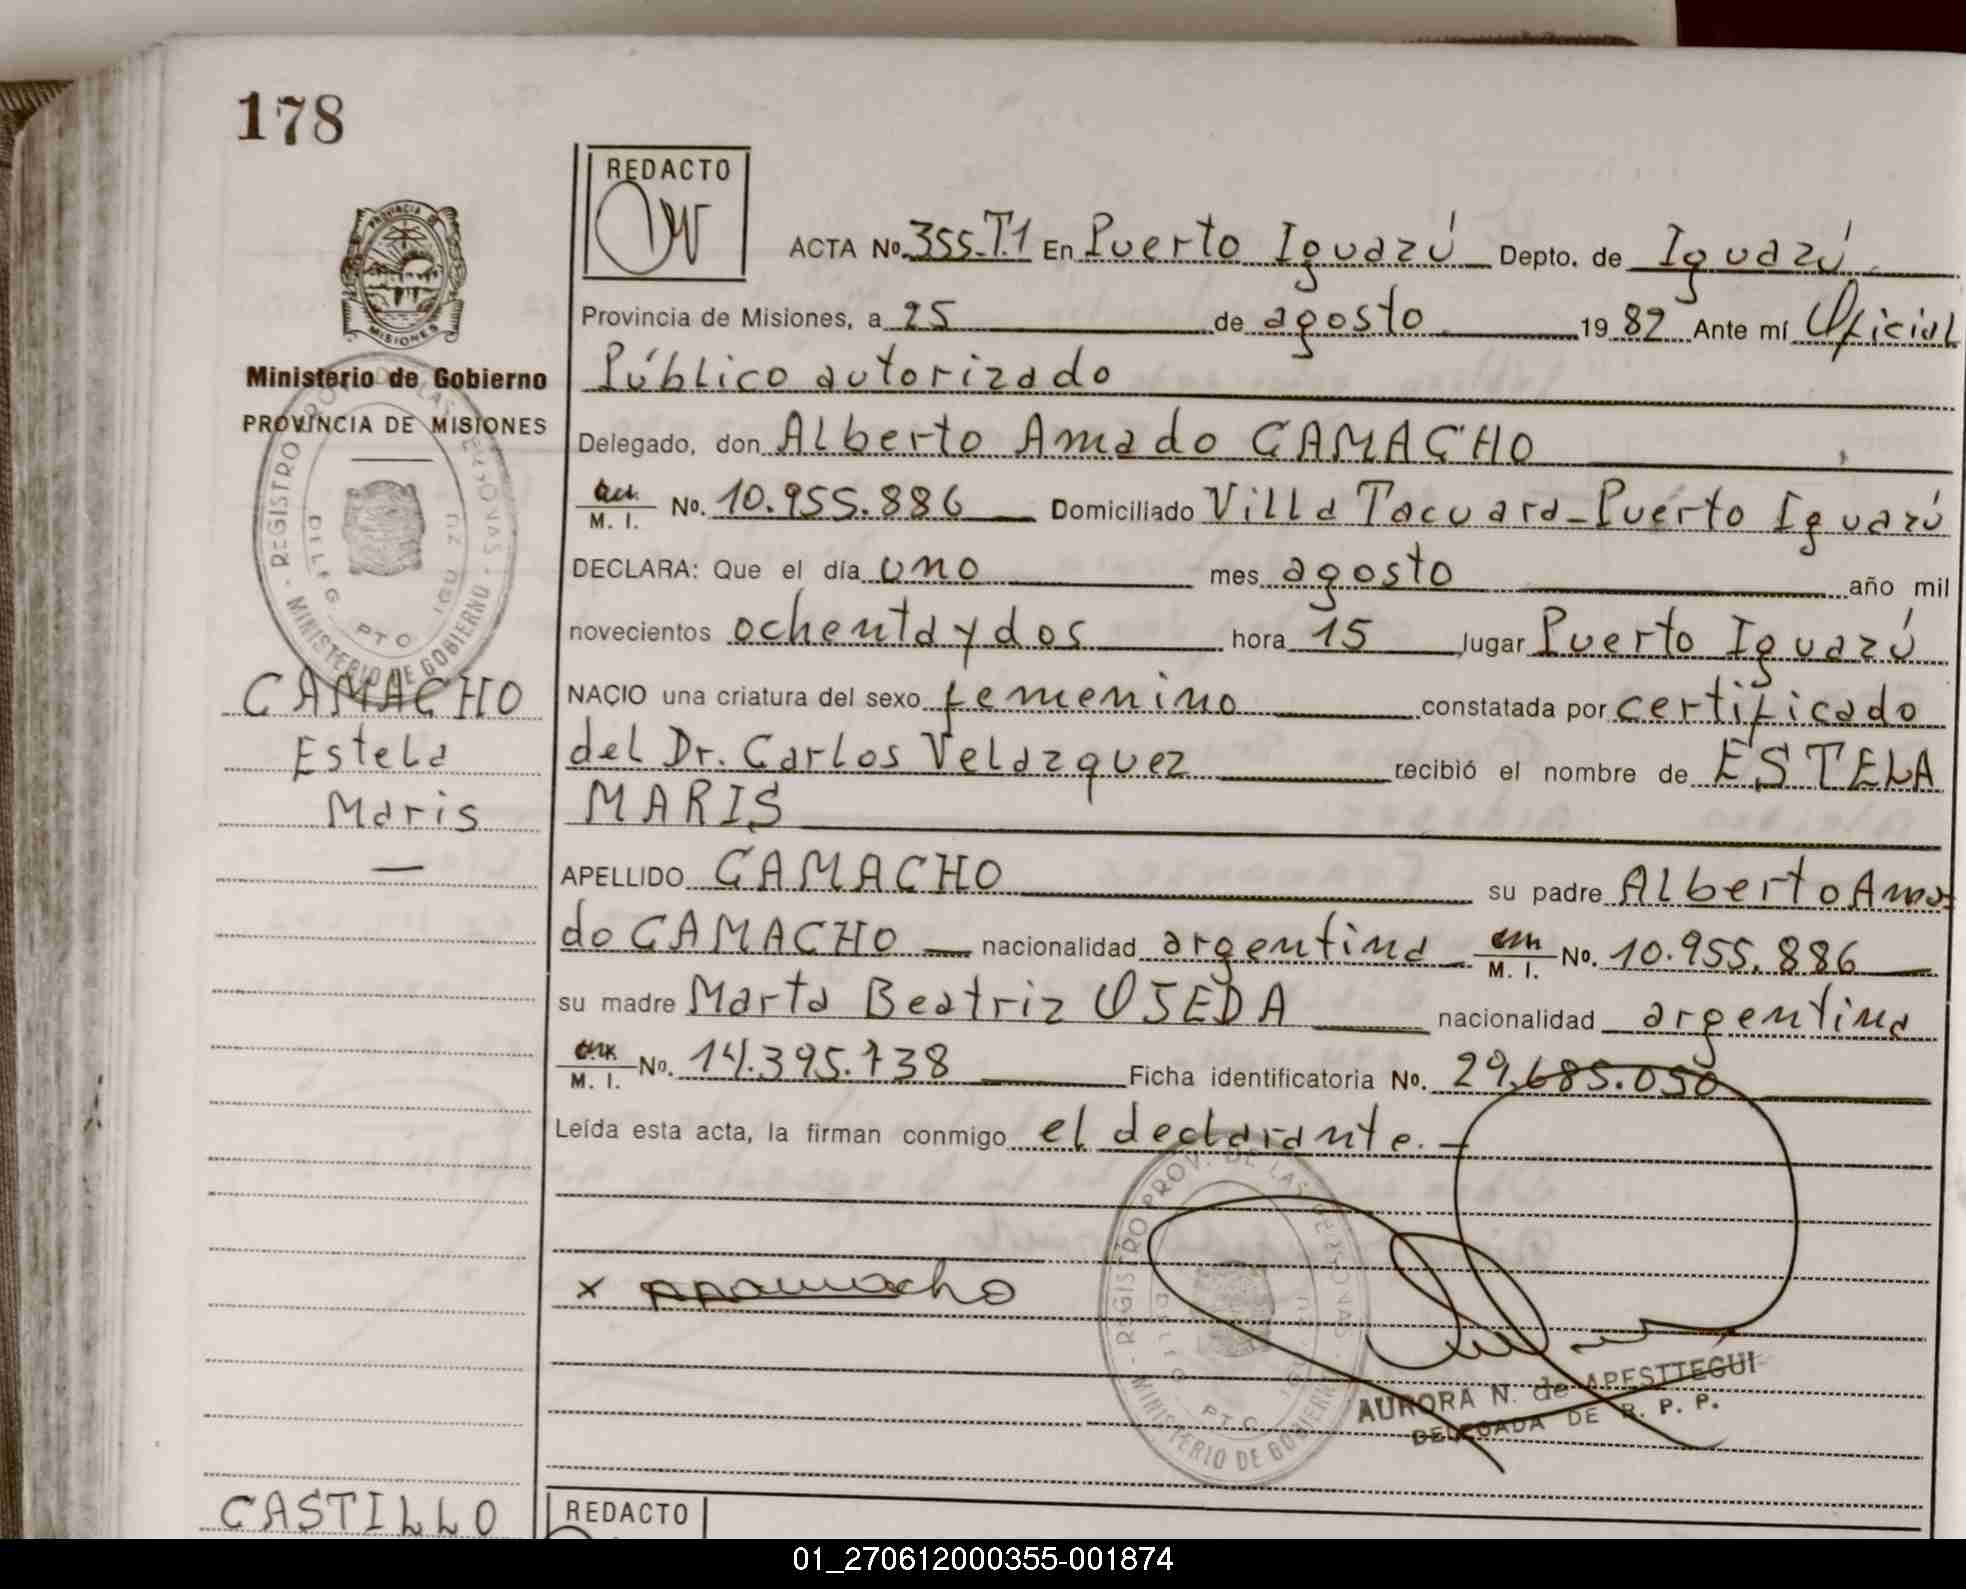 178
REDACTO
ACTA No. 355-T.1 En Puerto Iguazú Depto. de Iguazú
Provincia de Misiones, a 25 de agosto 19 82 Ante mí Oficial
Público autorizado
Delegado, don Alberto Amado CAMACHO
M. I. No. 10.955.886 Domiciliado Villa Tacuara-Puerto Iguazú
DECLARA: Que el día uno mes agosto año mil
novecientos ochenta y dos hora 15 lugar Puerto Iguazú
NACIO una criatura del sexo femenino constatada por certificado
del Dr. Carlos Velazquez recibió el nombre de ESTELA
MARIS
APELLIDO CAMACHO su padre Alberto Ama-
do CAMACHO nacionalidad argentina M. I. No. 10.955.886
su madre Marta Beatriz OJEDA nacionalidad argentina
M. I. No. 14.395.738 Ficha identificatoria No. 29.685.050
Leída esta acta, la firman conmigo el declarante.-
x
AURORA N. de APESTTEGUI
DELEGADA DE R. P. P.
REGISTRO PROV. DE LAS PERSONAS - MINISTERIO DE GOBIERNO
DELEG. PTO.
PROVINCIA DE MISIONES
Ministerio de Gobierno
PROVINCIA DE MISIONES
REGISTRO PROV. DE LAS PERSONAS - MINISTERIO DE GOBIERNO
DELEG. PTO.
CAMACHO
Estela
Maris
—
CASTILLO
REDACTO
01_270612000355-001874